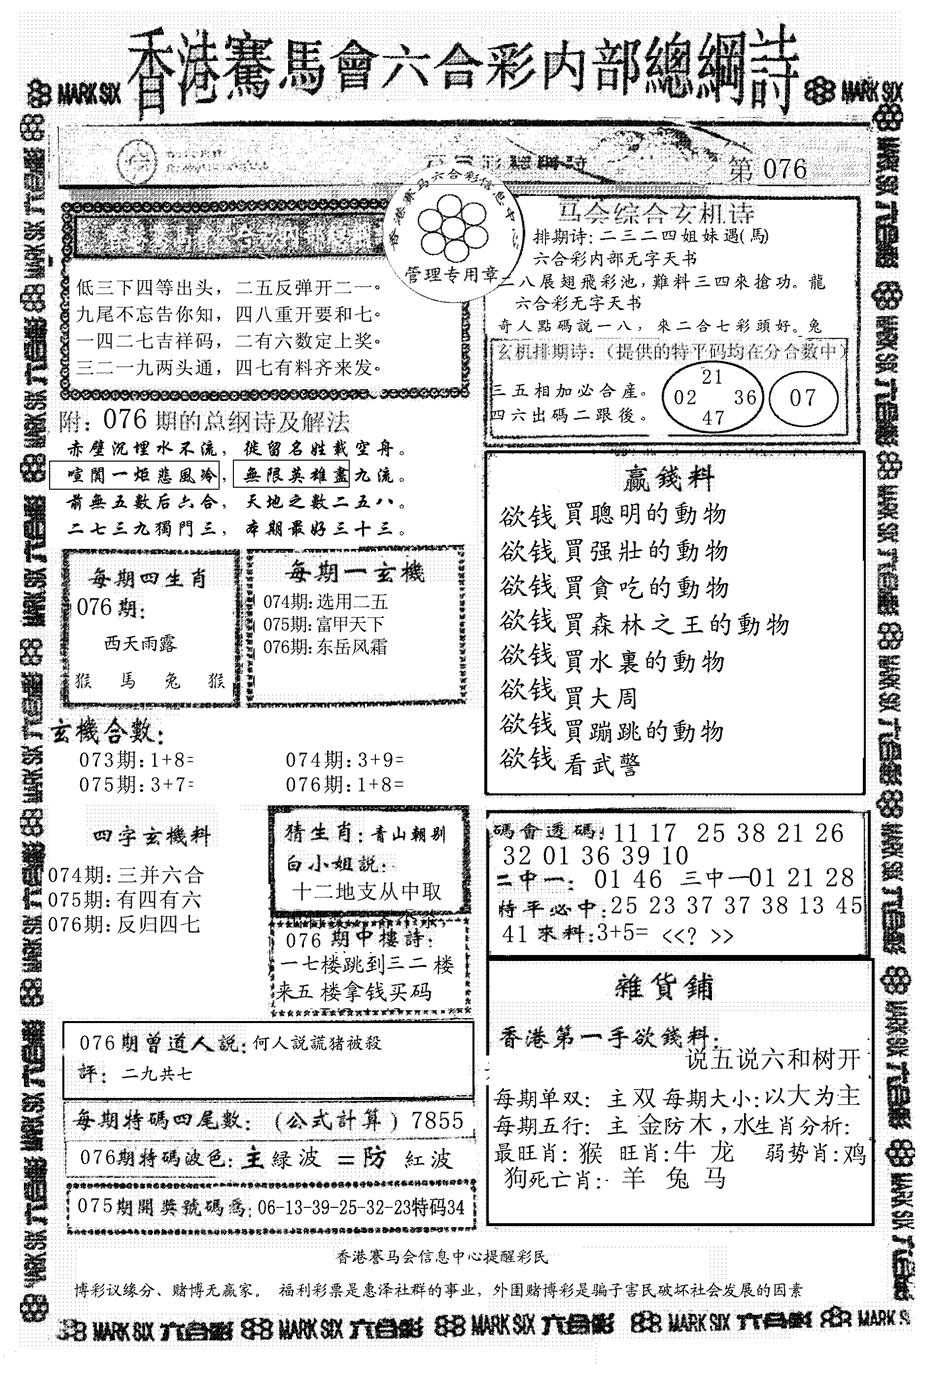 香港賽馬會六合彩内部總綱詩
MARK SIX
MARK SIX
第 076
香港赛马六合彩信息中心
管理专用章
低三下四等出头，二五反弹开二一。
九尾不忘告你知，四八重开要和七。
一四二七吉祥码，二有六数定上奖。
三二一九两头通，四七有料齐来发。
马会综合玄机诗
排期诗:二三二四姐妹遇(馬)
六合彩内部无字天书
二八展翅飛彩池,難料三四來搶功。龍
六合彩无字天书
奇人點碼説一八，來二合七彩頭好。兔
玄机排期诗:（提供的特平码均在分合数中）
三五相加必合産。
四六出碼二跟後。
21
02 36
47
07
附: 076 期的总纲诗及解法
赤壁沉埋水不流，徙留名姓載空舟。
喧閙一炬悲風冷，無限英雄盡九流。
前無五數后六合，天地之數二五八。
二七三九獨門三，本期最好三十三。
每期四生肖
076期:
西天雨露
猴 馬 兔 猴
每期一玄機
074期:选用二五
075期:富甲天下
076期:东岳风霜
赢錢料
欲钱買聰明的動物
欲钱買强壯的動物
欲钱買貪吃的動物
欲钱買森林之王的動物
欲钱買水裏的動物
欲钱買大周
欲钱買蹦跳的動物
欲钱看武警
玄機合數:
073期:1+8=
074期:3+9=
075期:3+7=
076期:1+8=
四字玄機料
074期:三并六合
075期:有四有六
076期:反归四七
猜生肖:青山朝别
白小姐説:
十二地支从中取
076 期中樓詩:
一七楼跳到三二楼
来五楼拿钱买码
碼會透碼: 11 17 25 38 21 26
32 01 36 39 10
二中一: 01 46 三中一01 21 28
特平必中:25 23 37 37 38 13 45
41 來料:3+5= <<? >>
076期曾道人説:何人説謊猪被殺
評: 二九共七
每期特碼四尾數: (公式計算) 7855
076期特碼波色:主緑波 =防 紅波
075期開獎號碼爲: 06-13-39-25-32-23特码34
雜貨鋪
香港第一手欲錢料:
说五说六和树开
每期单双: 主双 每期大小:以大为主
每期五行: 主 金防木,水生肖分析:
最旺肖: 猴 旺肖:牛 龙 弱势肖:鸡
狗死亡肖: 羊 兔 马
香港賽马会信息中心提醒彩民
博彩议缘分、赌博无赢家。 福利彩票是惠泽社群的事业，外围赌博彩是骗子害民破坏社会发展的因素
MARK SIX 六合彩 MARK SIX 六合彩 MARK SIX 六合彩 MARK SIX 六合彩 MARK SIX